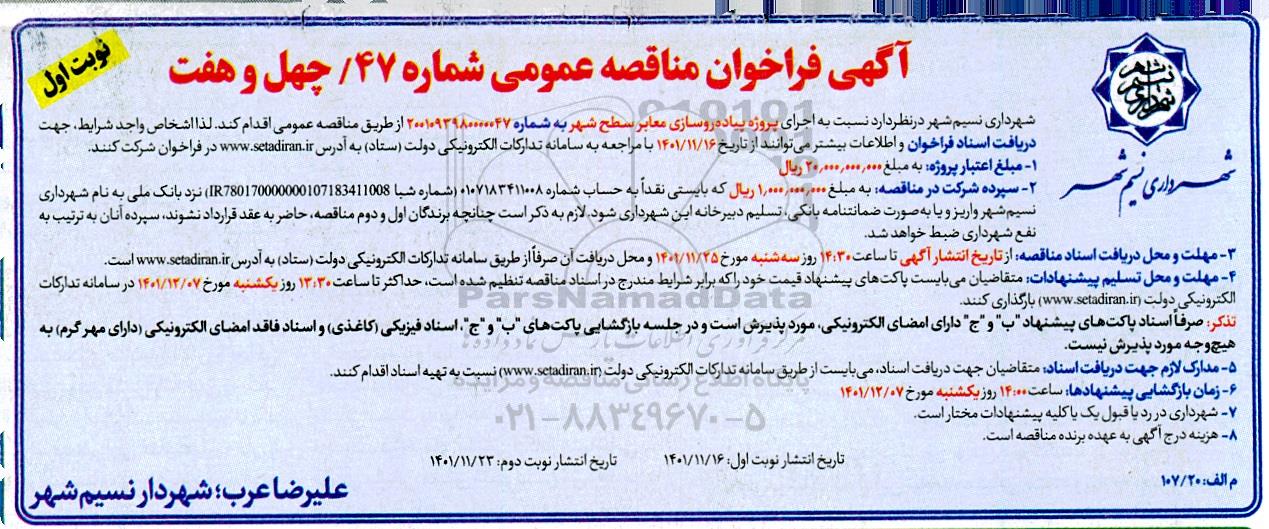 نوبت اول
آگهی فراخوان مناقصه عمومی شماره ۴۷/ چهل و هفت
شهرداری نسیم شهر
شهرداری نسیم‌شهر درنظر دارد نسبت به اجرای پروژه پیاده‌روسازی معابر سطح شهر به شماره ۲۰۰۱۰۹۳۹۸۰۰۰۰۰۴۷ از طریق مناقصه عمومی اقدام کند. لذا اشخاص واجد شرایط، جهت
دریافت اسناد فراخوان و اطلاعات بیشتر می‌توانند از تاریخ ۱۴۰۱/۱۱/۱۶ با مراجعه به سامانه تدارکات الکترونیکی دولت (ستاد) به آدرس www.setadiran.ir در فراخوان شرکت کنند.
۱- مبلغ اعتبار پروژه: به مبلغ ۲۰,۰۰۰,۰۰۰,۰۰۰ ریال
۲- سپرده شرکت در مناقصه: به مبلغ ۱,۰۰۰,۰۰۰,۰۰۰ ریال که بایستی نقداً به حساب شماره ۰۱۰۷۱۸۳۴۱۱۰۰۸ (شماره شبا IR780170000000107183411008) نزد بانک ملی به نام شهرداری
نسیم‌شهر واریز و یا به‌صورت ضمانتنامه بانکی، تسلیم دبیرخانه این شهرداری شود. لازم به ذکر است چنانچه برندگان اول و دوم مناقصه، حاضر به عقد قرارداد نشوند، سپرده آنان به ترتیب به
نفع شهرداری ضبط خواهد شد.
۳- مهلت و محل دریافت اسناد مناقصه: از تاریخ انتشار آگهی تا ساعت ۱۴:۳۰ روز سه‌شنبه مورخ ۱۴۰۱/۱۱/۲۵ و محل دریافت آن صرفاً از طریق سامانه تدارکات الکترونیکی دولت (ستاد) به آدرس www.setadiran.ir است.
۴- مهلت و محل تسلیم پیشنهادات: متقاضیان می‌بایست پاکت‌های پیشنهاد قیمت خود را که برابر شرایط مندرج در اسناد مناقصه تنظیم شده است، حداکثر تا ساعت ۱۳:۳۰ روز یکشنبه مورخ ۱۴۰۱/۱۲/۰۷ در سامانه تدارکات
الکترونیکی دولت (www.setadiran.ir) بارگذاری کنند.
تذکر: صرفاً اسناد پاکت‌های پیشنهاد "ب" و "ج" دارای امضای الکترونیکی، مورد پذیرش است و در جلسه بازگشایی پاکت‌های "ب" و "ج"، اسناد فیزیکی (کاغذی) و اسناد فاقد امضای الکترونیکی (دارای مهر گرم) به
هیچ‌وجه مورد پذیرش نیست.
۵- مدارک لازم جهت دریافت اسناد: متقاضیان جهت دریافت اسناد، می‌بایست از طریق سامانه تدارکات الکترونیکی دولت (www.setadiran.ir) نسبت به تهیه اسناد اقدام کنند.
۶- زمان بازگشایی پیشنهادها: ساعت ۱۴:۰۰ روز یکشنبه مورخ ۱۴۰۱/۱۲/۰۷
۷- شهرداری در رد یا قبول یک یا کلیه پیشنهادات مختار است.
۸- هزینه درج آگهی به عهده برنده مناقصه است.
تاریخ انتشار نوبت اول: ۱۴۰۱/۱۱/۱۶ تاریخ انتشار نوبت دوم: ۱۴۰۱/۱۱/۲۳
م الف: ۱۰۷/۲۰
علیرضا عرب؛ شهردار نسیم شهر
ParsNamadData
مرکز فرآوری اطلاعات پارس نماد داده‌ها
پایگاه اطلاع رسانی مناقصه و مزایده
۰۲۱-۸۸۳۴۹۶۷۰-۵